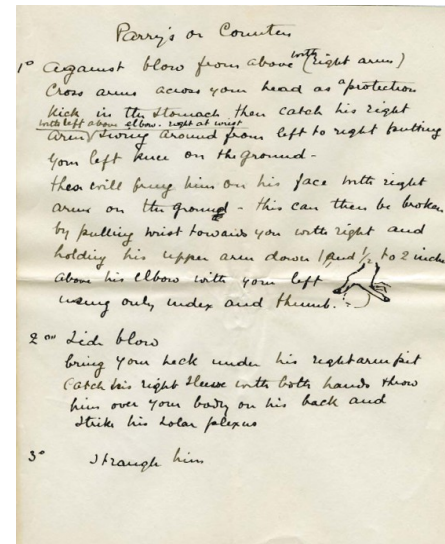 Parry's or Counters
1° Against blow from above with (right arm)
Cross arms across your head as a protection
kick in the stomach then catch his right
with left above elbow - right at wrist
arm / swing around from left to right putting
your left knee on the ground -
this will bring him on his face with right
arm on the ground - this can then be broken
by pulling wrist towards you with right and
holding his upper arm down 1 and ½ to 2 inches
above his elbow with your left
using only index and thumb. -
2 Side blow
bring your neck under his right armpit
catch his right sleeve with both hands throw
him over your body on his back and
strike his solar plexus
3° Strangle him